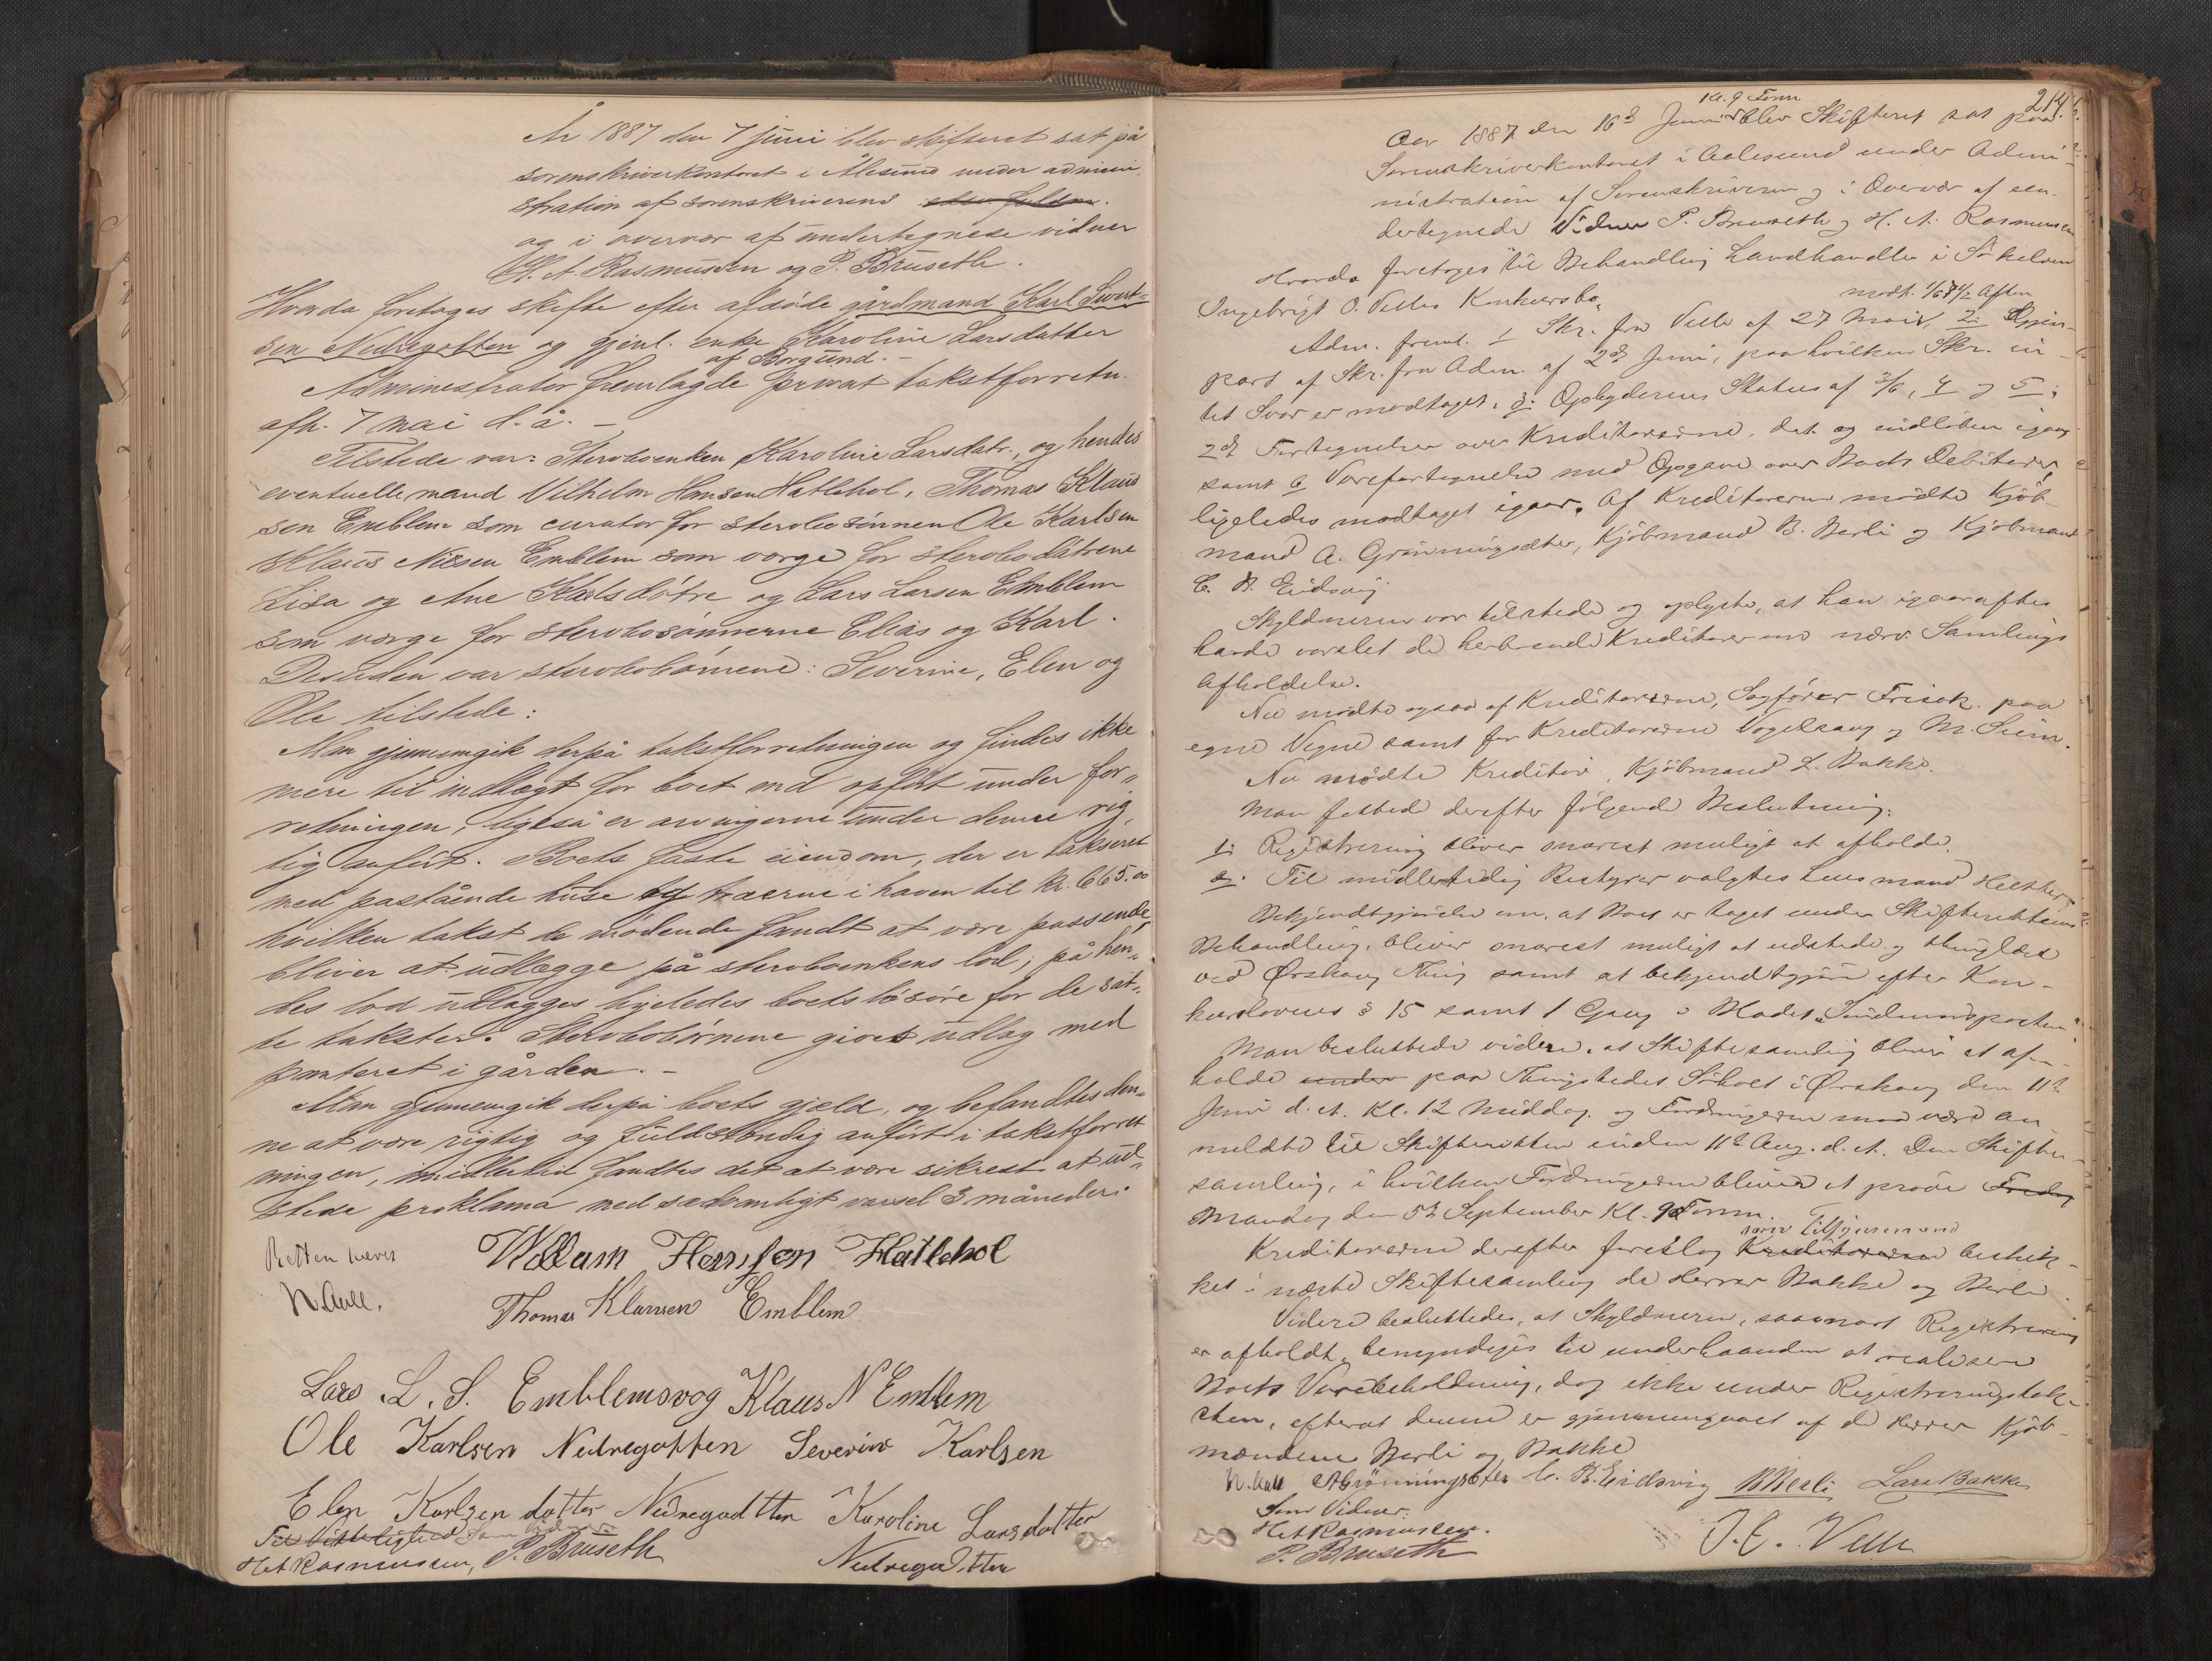 År 1887 den 7 juni blev skifteret sat på
sorenskriverkontoret i Ålesund under admini-
stration af sorenskriverens
og i overvær af undertegnede vidner
H. A. Rasmussen og P. Bruseth.
Hvorda foretoges skifte efter afdøde gårdmand Karl Sivert-
sen Nedregotten og gjenl. enke Karoline Larsdatter
af Borgund. –
Administrator fremlagde privat takstforretn.
afh. 7 mai d. å. –
Tilstede var: Sterboenken Karoline Larsdatr., og hendes
eventuelle mand Vilhelm Hansen Hatlehol, Thomas Klaus
sen Emblem som curator for sterbosønnen Ole Karlsen
Klaus Nilsen Emblem som værge for sterbodøtrene
Lisa og Ane Karlsdøtre og Lars Larsen Emblem
som værge for sterbosønnerne Elias og Karl.
Desuden var sterbobørnene: Severine, Elen og
Ole tilstede:
Man gjennemgik derpå takstforretningen og findes ikke
mere til indtægt for boet end opført under for„
retningen, ligeså er arvingerne under denne rig„
tig anført. Boets faste eiendom, der er takseret
med påstående huse og træerne i haven til kr. 665.00
hvilken takst de mødende fandt at være passende,
bliver at udlægge på sterboenkens lod; på hen„
des lod udlægges ligeledes boets løsøre for de sat„
te takster. Sterbobørnene gives udlæg med
panteret i gården. –
Man gjennemgik derpå boets gjæld, og befandtes den„
ne at være rigtig og fuldstændig anført i takstforret
ningen, imidlertid fandtes det at være sikrest at ud„
stede proklama med sædvanligt varsel 3 måneder.
Retten hævet
N. Aall.
Willam Hansen Hatlehol
Thomas Klausen Emblem
Lars L. S. Emblemsvog Klaus N Emblem
Ole Karlsen Nedregotten Severine Karlsen
Elen Karlsen datter Nedregaatten Karoline Larsdatter
Nedregaatten
Til Vitterlighed Som Vidner:
H A Rasmussen, P. Bruseth
214
kl. 9 Form
Aar 1887 den 16de Juni blev Skifteret sat paa
Sorenskriverkontoret i Aalesund under Admi-
nistration af Sorenskriveren og i Overvær af un-
dertegnede Vidner P. Bruseth og H. A. Rasmussen
Hvorda foretoges til Behandling Landhandler i Søkelven
Ingebrigt O. Velles Konkursbo.
modt. 1/6 7 1/2 Aften
Adm. freml. 1 Skr. fra Velle af 27 Mai, 2: Gjen-
part af Skr. fra Adm. af 2de Juni, paa hvilken Skr. in-
tet Svar er modtaget, 3: Opbyderens Status af 3/6, 4 og 5:
2de Fortegnelser over Kreditorerne, dat. og indløben igaar
samt 6 Varefortegnelse med Opgave over Boets Debitorer,
ligeledes modtaget igaar. Af Kreditorerne mødte Kjøb-
mand A. Grønningsæter, Kjøbmand B. Berli og Kjøbmand
C. B. Eidsvig
Skyldneren var tilstede og oplyste, at han igaaraftes
havde varslet de herboende Kreditorer om nærv. Samlings
Afholdelse.
Nu mødte ogsaa af Kreditorerne, Sagfører Frisak paa
egne Vegne samt for Kreditorerne Vogelsang og M. Siem.
Nu mødte Kreditor, Kjøbmand L. Bakke.
Man fattede derefter følgende Beslutning:
1: Registrering bliver snarest muligt at afholde.
2: Til midlertidig Bestyrer valgtes Lensmand
Bekjendtgjørelse om, at Boet er taget under Skifterettens
Behandling, bliver snarest muligt at udstede og thinglæse
ved Ørskoug Thing samt at bekjendtgjøre efter Kon-
kurslovens § 15 samt 1 Gang i Bladet „Søndmørsposten“
Man besluttede videre, at Skiftesamling bliver at af-
holde under paa Thingstedet Søholt i Ørskoug den 11te
Juni d. A. Kl. 12 Middag. og Fordringerne maa være an-
meldte til Skifteretten inden 11te Aug. d. A. Den Skifte-
samling, i hvilken Fordringerne bliver at prøve Fredag
Mandag den 5te September Kl. 9 Form.
som Tillidsmænd
Kreditorerne derefter foreslog Kreditorerne beskik-
ket i næste Skiftesamling de Herrer Bakke og Berli.
Videre besluttedes, at Skyldneren, saasnart Registrering
er afholdt, bemyndiges til underhaanden at realisere
Boets Varebeholdning, dog ikke under Registreringstak-
sten, efterat denne er gjennemgaaet af de Herrer Kjøb-
mændene Berli og Bakke
N. Aall A Grønningsæter C. B. Eidsvig B Berli Lars Bakke
Som Vidner:
H A Rasmussen.
P. Bruseth
I. O. Velle